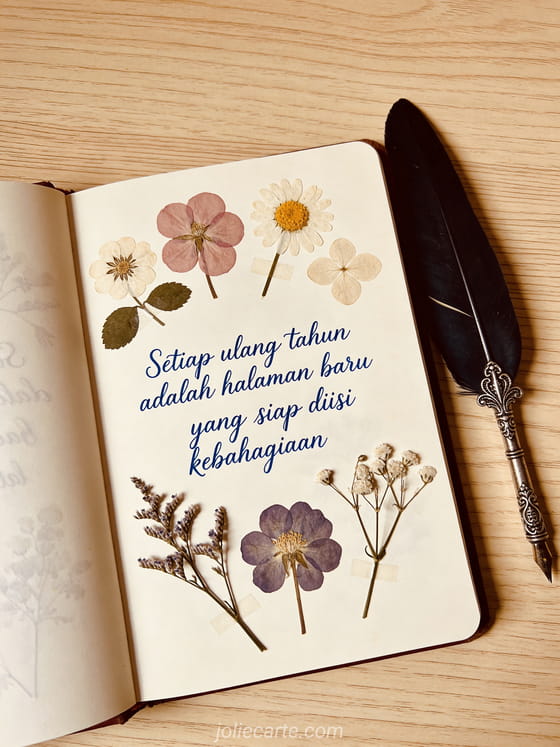 Setiap ulang tahun
adalah halaman baru
yang siap diisi
kebahagiaan
joliecarte.com